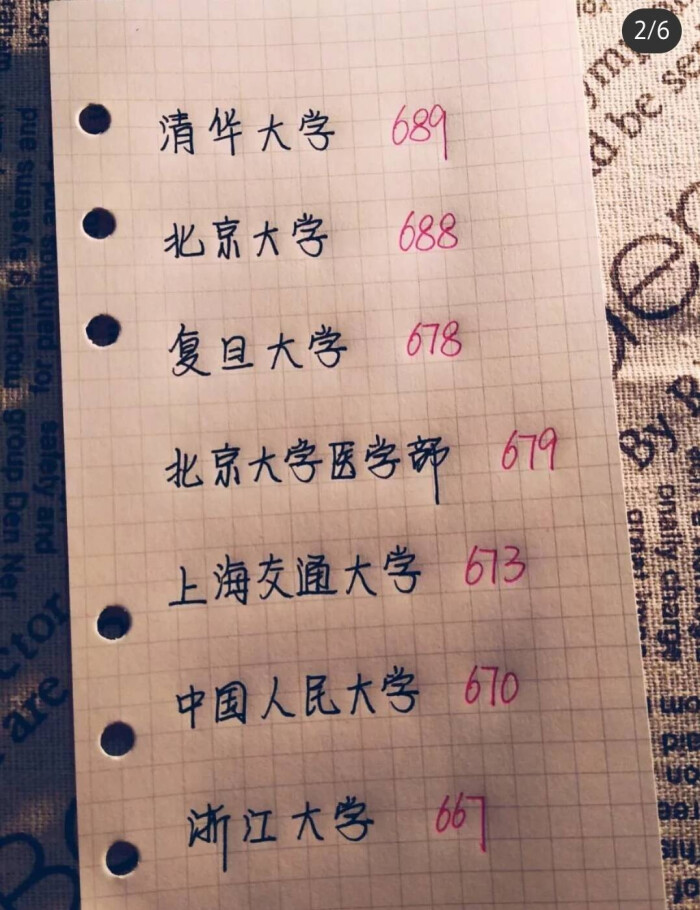 2/6
清华大学 689
北京大学 688
复旦大学 678
北京大学医学部 679
上海交通大学 673
中国人民大学 670
浙江大学 667
systems and
for paintings and
safety and
group Den Ner
ctor
are
be se
By
onally charge